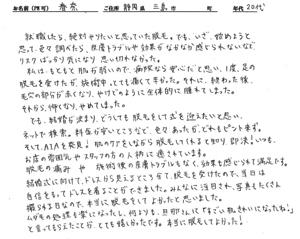 お名前(PN可) 春奈 ご住所 静岡県 三島市 町 年代 20代
就職したら、絶対やりたいと思っていた脱毛。でも、いざ、始めようと
思って、色々調べたら、皮膚トラブルや効果がなかなか感じられないなど、
リスクばっかり気になり思い切れなかった。
私は、もともと肌が弱いので、病院なら安心だと思い、1度、足の
脱毛を受けたが、施術中、とても痛くて辛かった。それに、終わった後、
毛穴の部分が赤くなり、やけどのように全体的に腫れてしまった。
それから、怖くなり、やめてしまった。
でも、結婚が決まり、どうしても脱毛をして式を迎えたいと思い、
ネットで検索。料金が安いところなど、色々あったが、どれもピンと来ず。
そして、ATAを発見!肌のケアをしながら脱毛してくれると知り、即決!いつも、
お店の雰囲気やスタッフの方の人柄に癒されています。
脱毛の痛みや施術後の皮膚トラブルもなく、効果も感じられて満足です。
結婚式に向けて、ドレスから見えるところ全て、脱毛を受けたので、当日は
自信をもってドレスを着ることができました。みんなに注目され、写真もたくさん
撮られる日なので、本当に脱毛をしてよかったと思いました。
ムダ毛の処理も楽になったし、何よりも、旦那さんに「すごい肌きれいになったね。」
と言ってもらえたことが、とても嬉しかったです。本当に脱毛してよかった!